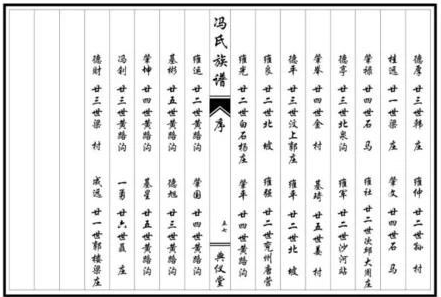 德厚 廿三世韩 庄 維仲 廿二世孙 村
桂远 廿一世梁 庄 荣文 廿四世石 马
荣禄 廿四世石 马 維社 廿二世次邱大周庄
德亭 廿三世北泉沟 維军 廿二世沙河站
荣举 廿四世金 村 基琦 廿五世姜 村
德平 廿三世汶上郭庄 維平 廿二世北 坡
維良 廿二世北 坡 維强 廿二世兖州唐营
維光 廿二世白石杨庄 荣平 廿四世黄路沟
冯氏族谱
序
五七
典仪堂
維运 廿二世黄路沟 荣国 廿四世黄路沟
基彬 廿五世黄路沟 德旭 廿三世黄路沟
荣坤 廿四世黄路沟 基星 廿五世黄路沟
冯钊 廿三世黄路沟 一勇 廿六世聂 庄
德财 廿三世梁 村 成远 廿一世郭楼梁庄